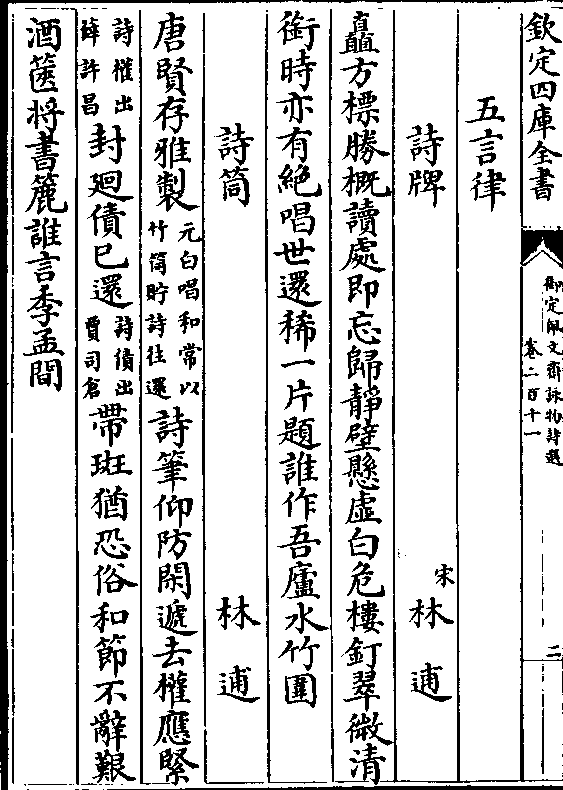 欽定四庫全書
御定佩文齋詠物詩選
卷二百十一
二
五言律
詩牌
宋林逋
矗方標勝概讀處即忘歸靜壁懸虛白危樓釘翠微清
銜時亦有絶唱世還稀一片題誰作吾廬水竹圍
詩筒
林逋
唐賢存雅製元白唱和常以竹筒貯詩往還詩筆仰防閑遞去權應緊
詩權出薛許昌封廻債已還詩債出賈司倉帶斑猶恐俗和節不辭艱
酒篋将書簏誰言季孟間